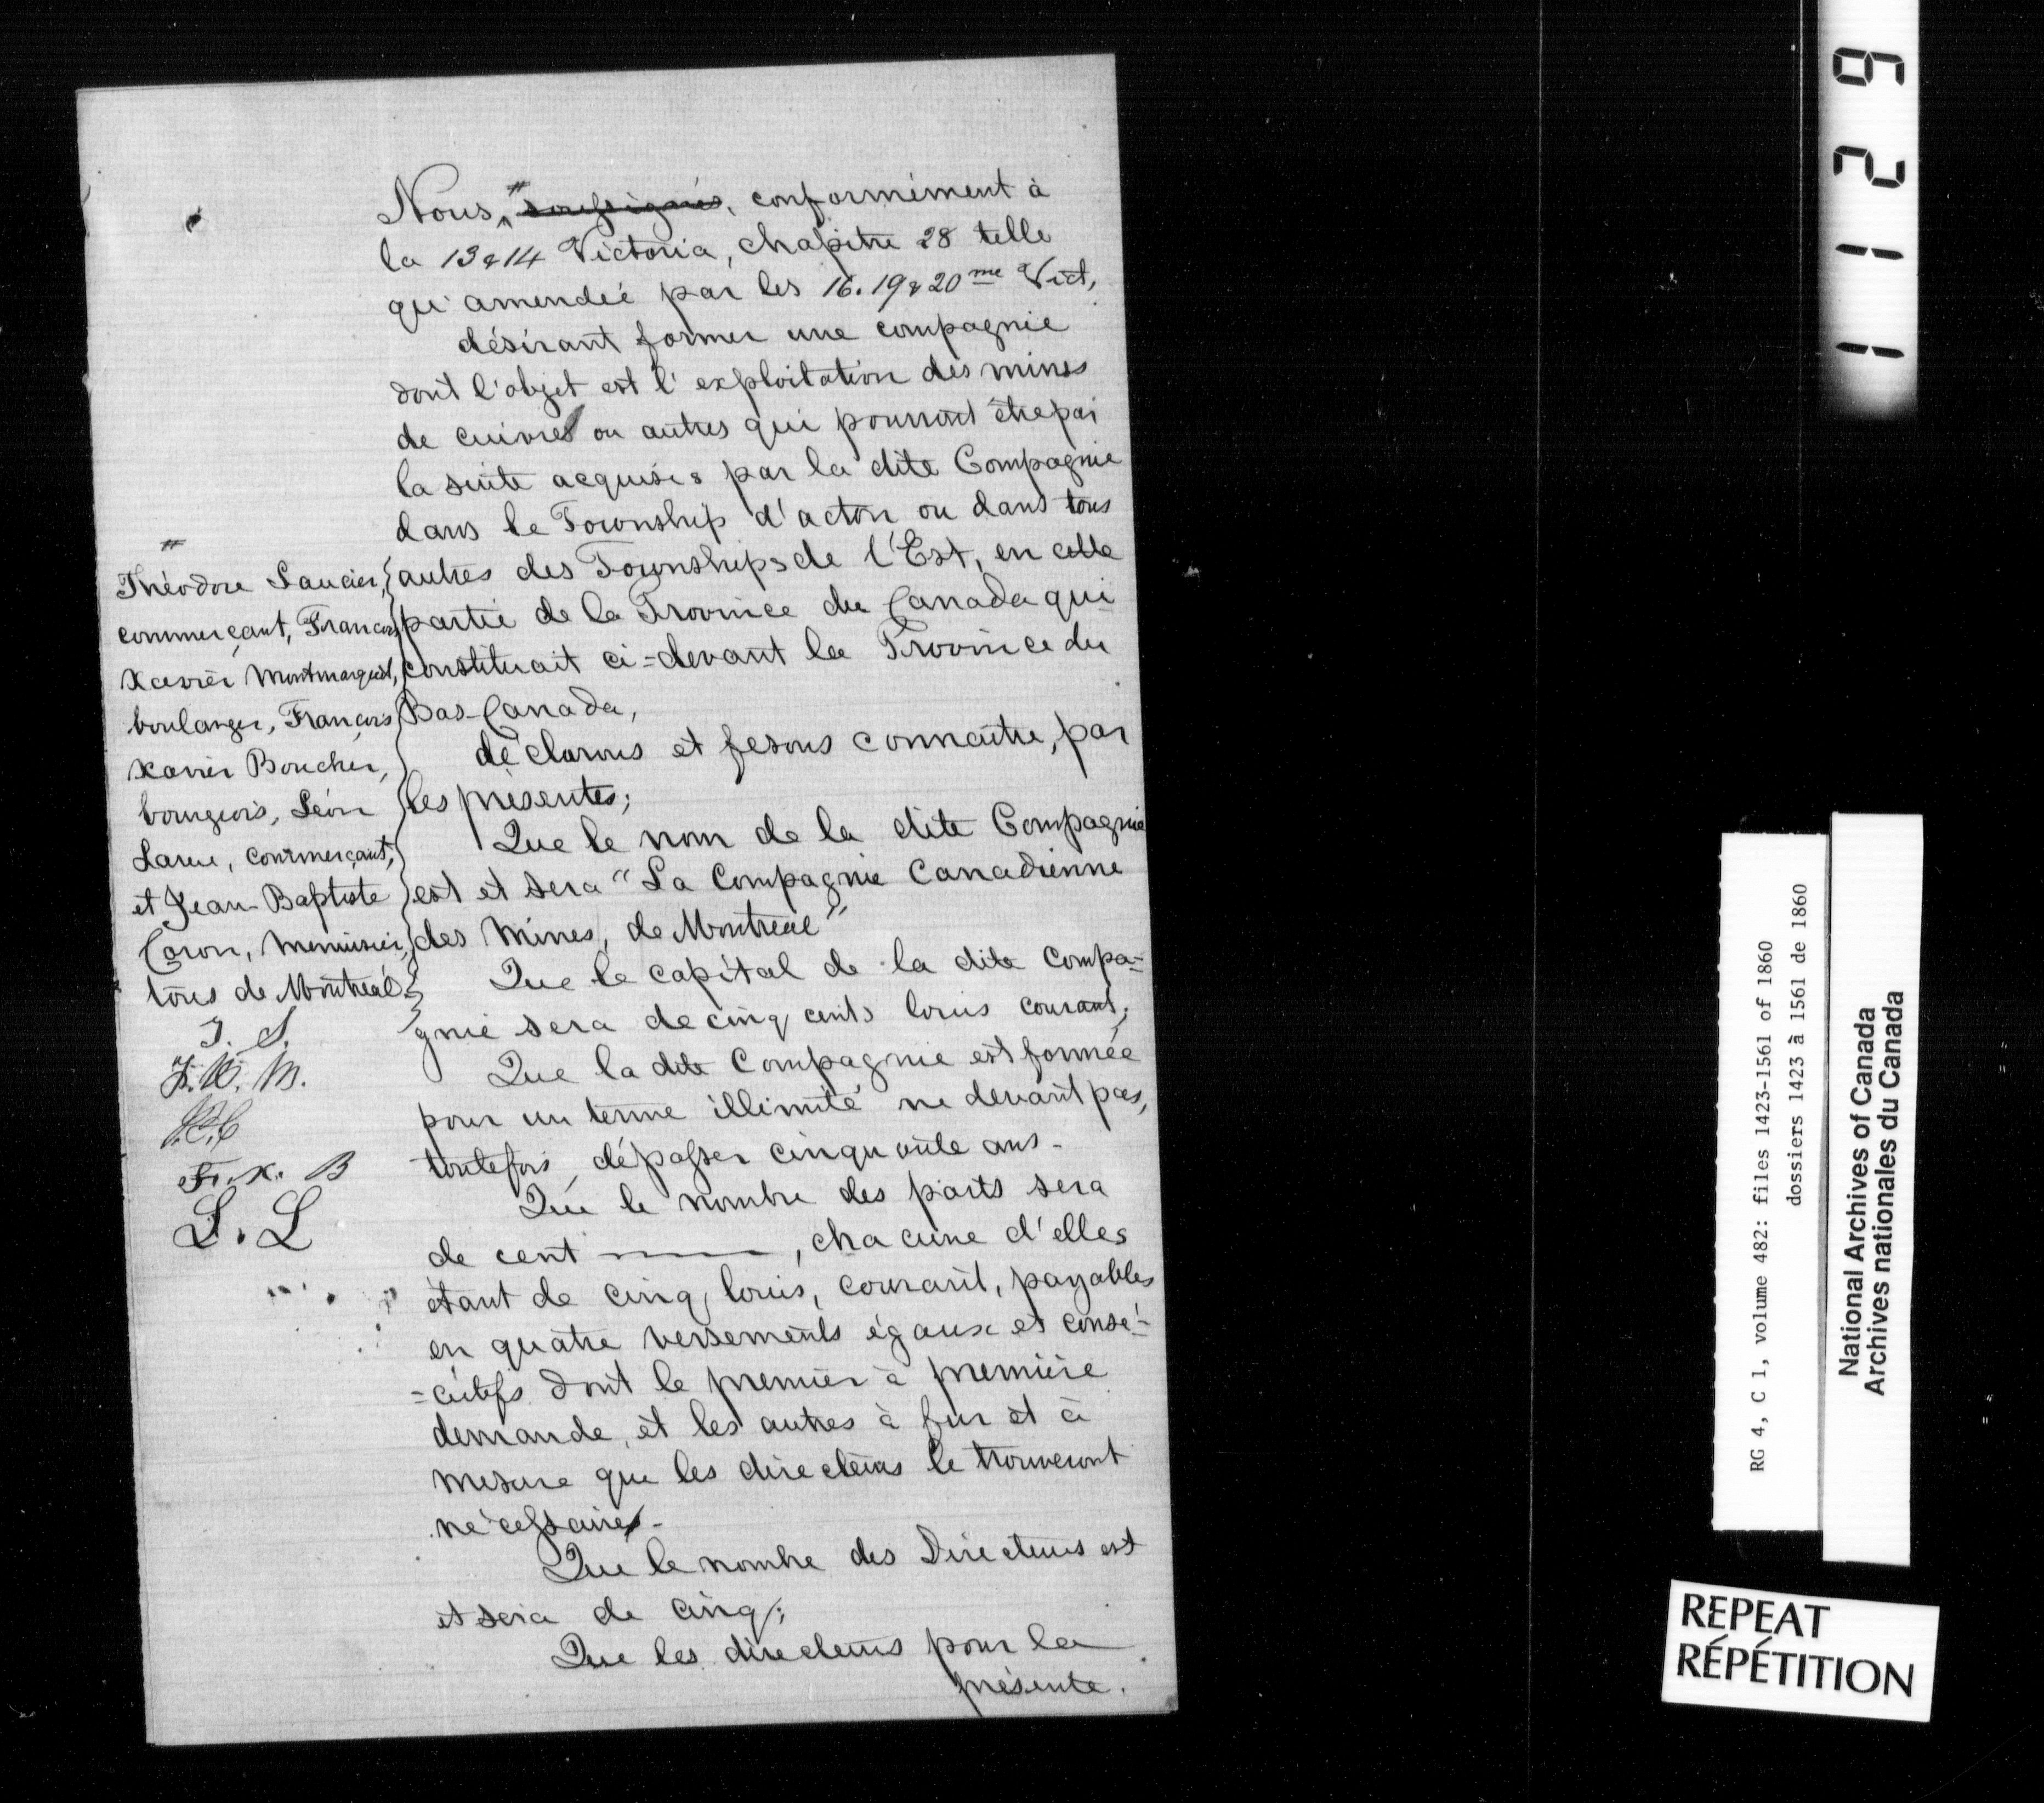 Nous, # soussignés, conformément à
la 13 & 14 Victoria, chapitre 28 telle
qu'amendée par les 16. 19 & 20me Vict,
désirant former une compagnie
dont l'objet est l'exploitation des mines
de cuivre ou autres qui pourront être par
la suite acquises par la dite Compagnie
dans le Township d'acton ou dans tous
autres des Townships de l'Est, en cette
partie de la Province du Canada qui
constituait ci-devant la Province du
Bas-Canada,
déclarons et fesons connaître, par
les présentes;
Que le nom de la dite Compagnie
est et sera "La Compagnie Canadienne
des Mines, de Montréal"
Que le capital de la dite Compa-
gnie sera de cinq cents louis courant;
Que la dite Compagnie est formée
pour un terme illimité ne devant pas,
toutefois, dépasser cinquante ans-
Que le nombre des parts sera
de cent ———, chacune d'elles
étant de cinq louis, courant, payables
en quatre versements égaux et consé-
=cutifs dont le premier à première
demande, et les autres à fur et à
mesure que les directeurs le trouveront
nécessaire-
Que le nombre des Directeurs est
et sera de cinq;
Que les directeurs pour la
présente.
#
Théodore Saucier,
commerçant, François
Xavier Montmarquet,
boulanger, François
Xavier Boucher,
bourgeois, Léon
Larue, commerçant,
et Jean-Baptiste
Caron, Menuisier,
tous de Montréal-
T. S.
F. X. M.
J.B.C
F. X. B
L. L
1129
RG 4, C 1, volume 482: files 1423-1561 of 1860
dossiers 1423 à 1561 de 1860
National Archives of Canada
Archives nationales du Canada
REPEAT
RÉPÉTITION